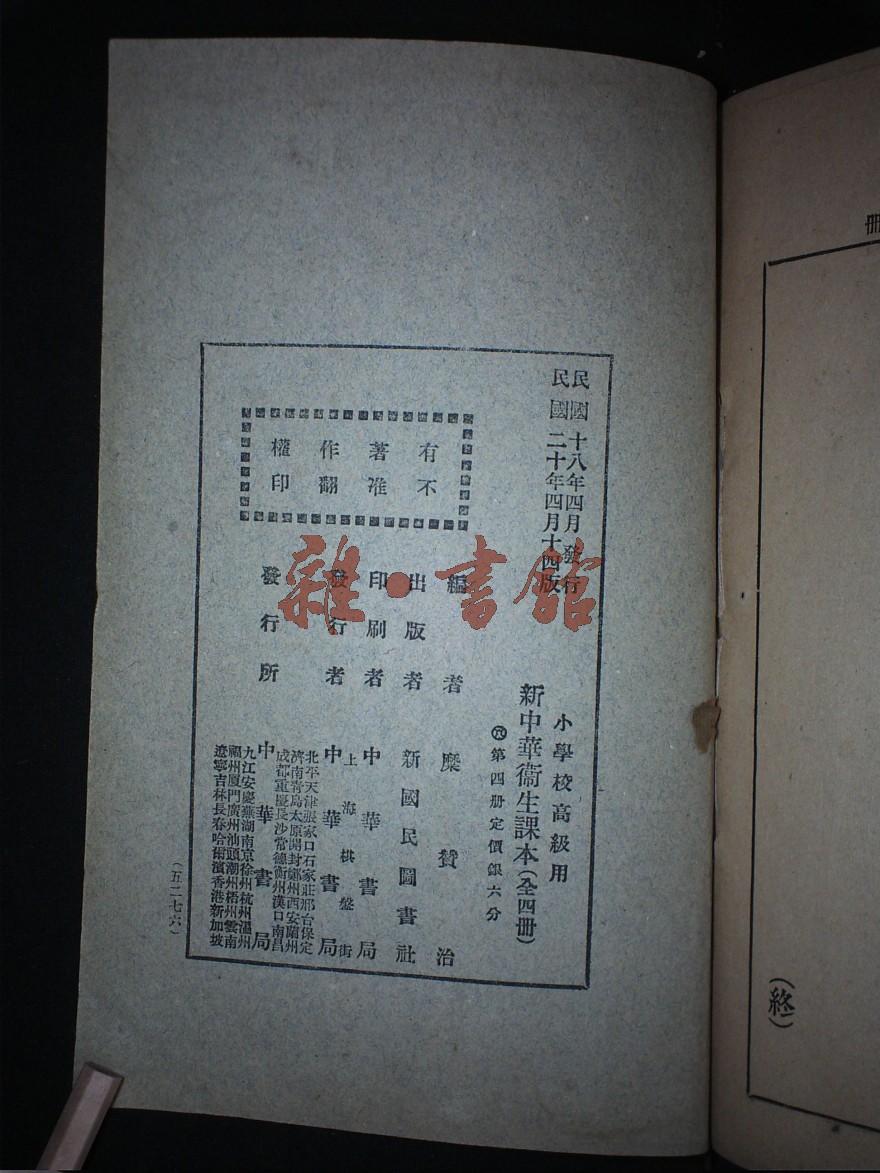 冊
(終)
民國十八年四月發行
民國二十年四月十四版
小學校高級用
新中華衞生課本(全四冊)
第四册定價銀六分
有著作權
不准翻印
編者 糜贊治
出版者 新國民圖書社
印刷者 中華書局
發行者 中華書局
上海棋盤街
發行所 中華書局
北平天津張家口石家莊邢台保定
濟南青島太原開封鄭州西安蘭州
成都重慶長沙常德衡州漢口南昌
九江安慶蕪湖南京徐州杭州溫州
福州厦門廣州汕頭潮州梧州雲南
遼寧吉林長春哈爾濱香港新加坡
(五二七六)
雜·書館